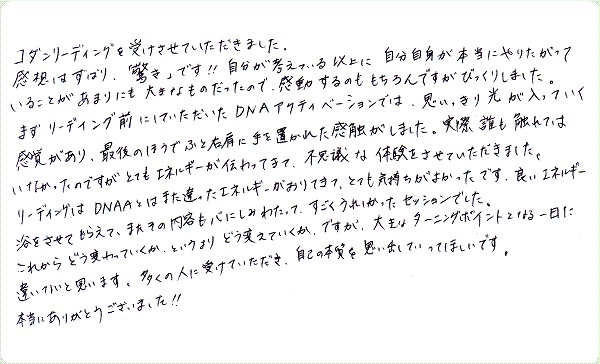 コダンリーディングを受けさせていただきました。
感想はずばり、「驚き」です!! 自分が考えている以上に 自分自身が本当にやりたがって
いることがあまりにも大きなものだったので、感動するのももちろんですがびっくりしました。
まずリーディング前にしていただいたDNAアクティベーションでは、思いっきり光が入っていく
感覚があり、最後のほうでふと右肩に手を置かれた感触がしました。実際誰も触れては
いなかったのですがとてもエネルギーが伝わってきて、不思議な体験をさせていただきました。
リーディングはDNAAとはまた違ったエネルギーがおりてきて、とても気持ちがよかったです。良いエネルギー
浴をさせてもらえて、またその内容も心にしみわたって、すごくうれしかったセッションでした。
これからどう変わっていくか、というよりどう変えていくか、ですが、大きなターニングポイントとなる一日に
違いないと思います。多くの人に受けていただき、自己の本質を思い出していってほしいです。
本当にありがとうございました!!